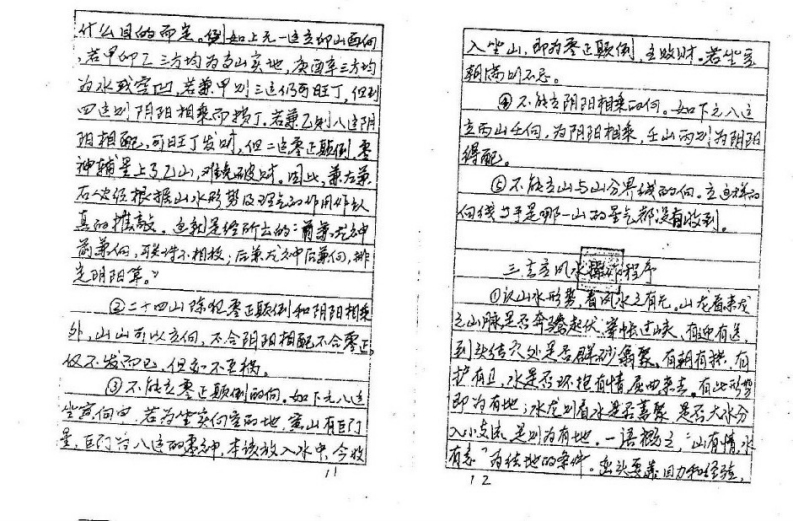 什么目的而定。例如上元一运立卯山酉向
,若甲卯乙三方均为高山实地,庚酉辛三方均
为水或空凹,若兼甲则三运仍可旺丁,但到
四运则阴阳相乘而损丁,若兼乙则八运阴
阳相配,可旺丁发财,但二运零正颠倒,零
神辅星上了乙山,难免破财。因此,兼左兼
右必须根据山水形势及理气的作用作认
真的推敲。这就是经所云的:“前兼龙神
前兼向,联珠不相放;后兼龙神后兼向,排
定阴阳算。”
②二十四山除犯零正颠倒和阴阳相乘
外,山山可以立向,不合阴阳相配不合零正,
仅不发而已,但亦不至祸。
③不能立零正颠倒的向。如下元八运
坐 向 ,若为坐实向空的地, 山有巨门
星,巨门为八运的零神,本该放入水中,今收
11
入坐山,即为零正颠倒,主败财。若坐空
朝满则不忌。
④不能立阴阳相乘的向。如下元八运
立丙山壬向,为阴阳相乘,壬山丙则为阴阳
得配。
⑤不能立山与山分界线的向。立这样的
向 于是哪一山的星气都没有收到。
三、 立风水操作程序
①认山水形势,看风水之有无。山龙看来龙
之山脉是否奔腾起伏,峯帐过峡,有迎有送,
到头结穴处是否群砂 聚,有朝有拱,有
护有卫,水是否环抱有情,屈曲来去。有此形势
即为有地;水龙则看水是否蓄聚,是否大水分
入小支流,是则为有地。一语概之,“山有情,水
有意”为结地的条件。峦头要靠目力和经验,
12